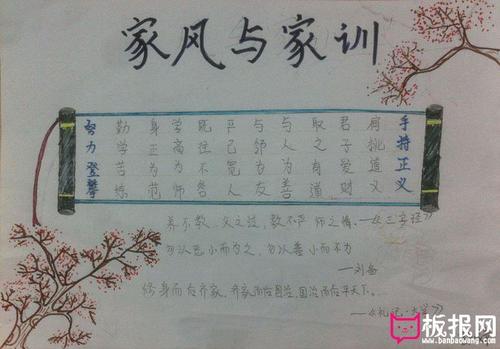 家风与家训
手持正义
肩挑道义
君子爱财
取之有道
与人为善
与邻为友
严己宽人
既往不咎
学高为师
身正为范
勤学苦练
努力登攀
养不教，父之过，教不严 师之惰。——《三字经》
勿以恶小而为之，勿以善小而不为
——刘备
修身而后齐家，齐家而后国治，国治而后平天下。
——《礼记·大学》
板报网
www.banbaowang.com